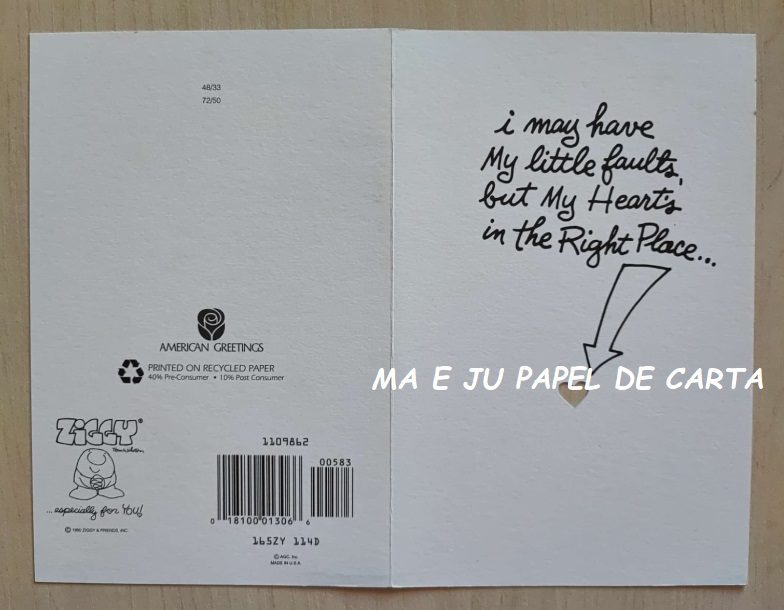 48/33
72/50
AMERICAN GREETINGS
PRINTED ON RECYCLED PAPER
40% Pre-Consumer • 10% Post Consumer
ZiGGY®
...especially for You!
© 1990 ZIGGY & FRIENDS, INC.
1109862
00583
0 18100 01306 6
165ZY 114D
© AGC, Inc.
MADE IN U.S.A.
i may have
My little faults,
but My Heart's
in the Right Place...
MA E JU PAPEL DE CARTA